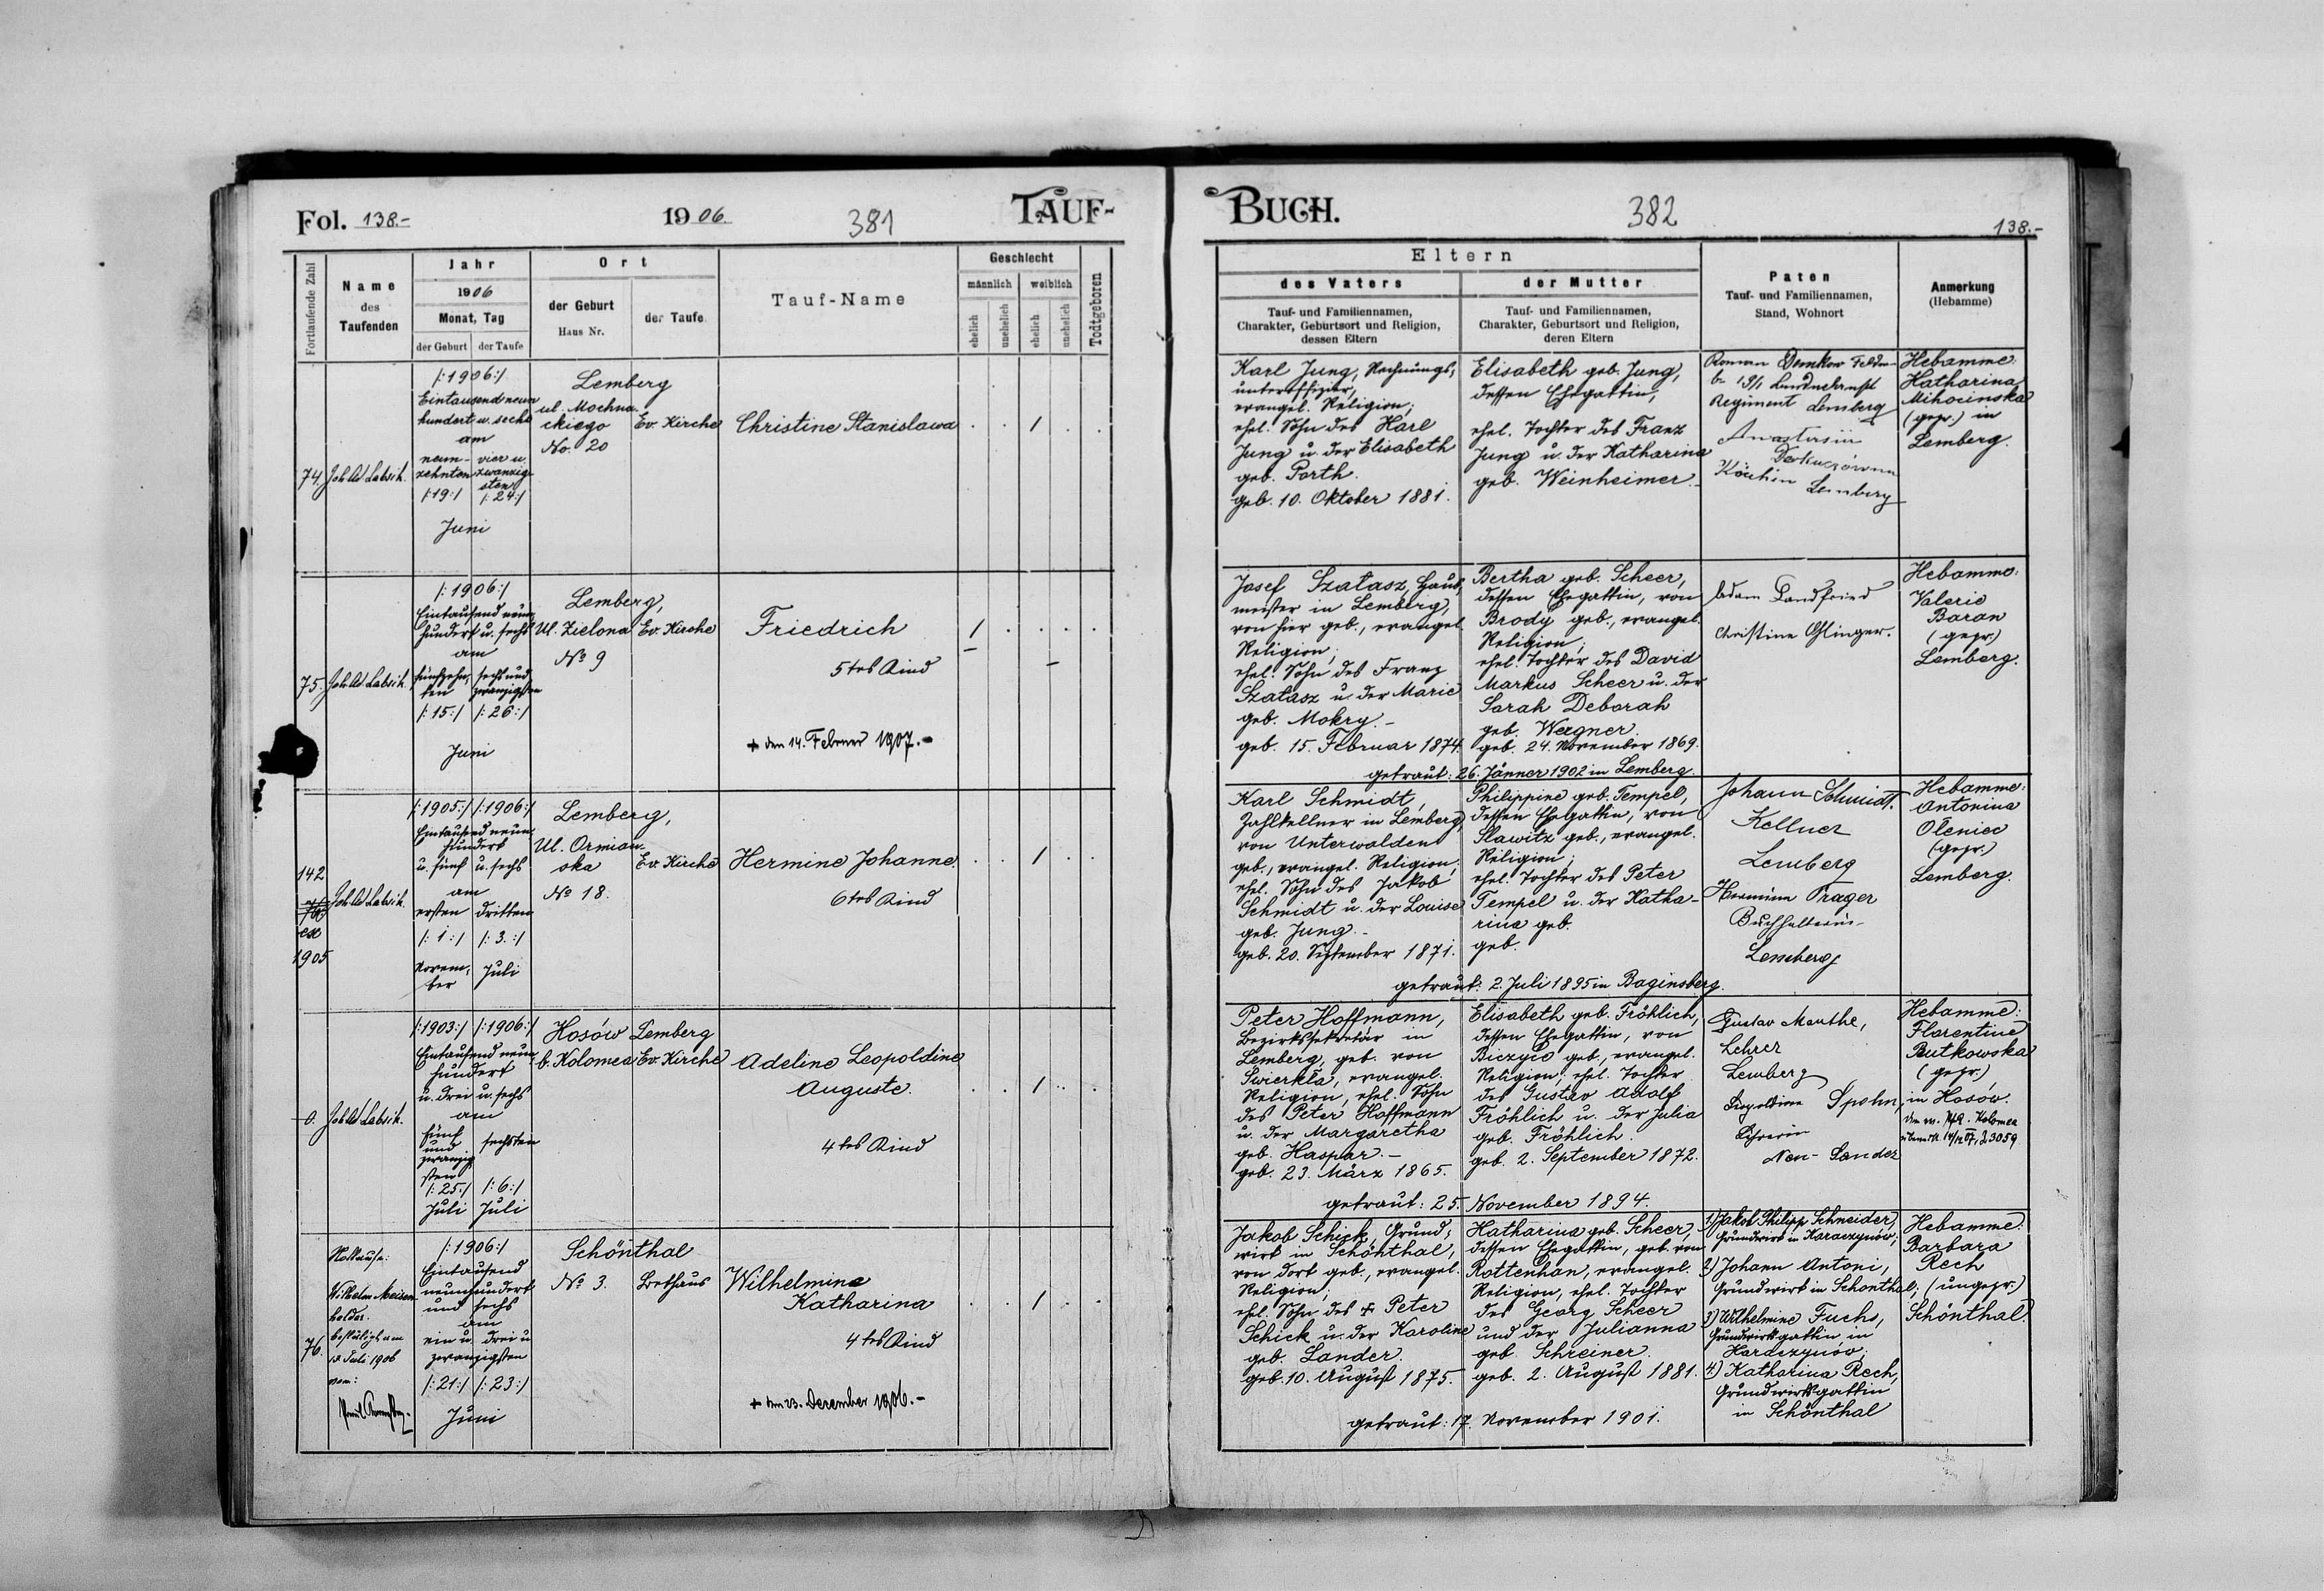 Fol. 138.-
1906.
381
TAUF-
Fortlaufende Zahl
Name
des
Taufenden
Jahr
1906
Monat, Tag
der Geburt
der Taufe
Ort
der Geburt
Haus Nr.
der Taufe
Tauf-Name
Geschlecht
männlich
weiblich
ehelich
unehelich
ehelich
unehelich
Todtgeboren
74.
/:1906:/
Eintausend neun
hundert u. sechs
am
neun- vier u.
zehnten zwanzig
sten
/:19:/ /:24:/
Juni
Lemberg
ul. Mochna-
ckiego
No. 20
Ev. Kirche
Christine Stanislawa
. . / . .
75.
/:1906:/
Eintausend neun
hundert u. sechs
am
fünfzehn- sechs und
ten zwanzigsten
/:15:/ /:26:/
Juni
Lemberg,
Ul. Zielona
No 9
Ev. Kirche
Friedrich
5tes Kind
+ den 14. Februar 1907.-
/ . . . .
142
76
ex
1905
/:1905:/ /:1906:/
Eintausend neun
hundert
u. fünf u. sechs
am
ersten dritten
/:1:/ /:3.:/
Novem- Juli
ber
Lemberg,
Ul. Ormian-
ska
No 18.
Ev. Kirche
Hermine Johanne.
6tes Kind
. . / . .
0.
/:1903:/ /:1906:/
Eintausend neun
hundert
u. drei u. sechs
am
fünf sechsten
und
zwanzig
sten
/:25:/ /:6:/
Juli Juli
Kosów
b. Kolomea
Lemberg
Ev. Kirche
Adeline Leopoldine
Auguste.
4tes Kind
. . / . .
76.
Nottaufe:
Wilhelm Meisen-
helder.
bestätigt am
Juli 1906
vom:
/:1906:/
Eintausend
neunhundert
und sechs
am
ein u. drei u
zwanzigsten
/:21:/ /:23:/
Juni
Schönthal
No 3.
Bethaus
Wilhelmine
Katharina
4tes Kind
+ den 23. Dezember 1906.-
. . / . .
BUCH.
382
138.-
Eltern
des Vaters
Tauf- und Familiennamen,
Charakter, Geburtsort und Religion,
dessen Eltern
der Mutter
Tauf- und Familiennamen,
Charakter, Geburtsort und Religion,
deren Eltern
Paten
Tauf- und Familiennamen,
Stand, Wohnort
Anmerkung
(Hebamme)
Karl Jung, Rechnungs-
unteroffizier,
evangel. Religion;
ehel. Sohn des Karl
Jung u. der Elisabeth
geb. Porth.
geb. 10. Oktober 1881.
Elisabeth geb. Jung,
dessen Ehegattin,
ehel. Tochter des Franz
Jung u. der Katharina
geb. Weinheimer.-
Roman Demkow
Regiment Lemberg
Köchin
Lemberg
Hebamme:
Katharina
Mihocinska
(gepr.) in
Lemberg.
Josef Szatasz, Haus-
meister in Lemberg,
von hier geb., evangel.
Religion;
ehel. Sohn des Franz
Szatasz u. der Marie
geb. Mokry.-
geb. 15. Februar 1874.
Bertha geb. Scheer,
dessen Ehegattin, von
Brody geb., evangel.
Religion;
ehel. Tochter des David
Markus Scheer u. der
Sarah Deborah
geb. Wegner.
geb. 24. November 1869.
getraut: 26. Jänner 1902 in Lemberg.
Adam Landfried
Christine Oslinger.
Hebamme:
Valerie
Baran
(gepr.)
Lemberg.
Karl Schmidt,
Zahlkellner in Lemberg,
von Unterwalden
geb., evangel. Religion;
ehel. Sohn des Jakob
Schmidt u. der Louise
geb. Jung.-
geb. 20. September 1871.
Philippine geb. Tempel,
dessen Ehegattin, von
Slawitz geb., evangel.
Religion;
ehel. Tochter des Peter
Tempel u. der Katha-
rina geb.
geb.
getraut: 2. Juli 1895 in Baginsberg.
Johann Schmidt.
Kellner
Lemberg
Hermine Prager
Buchhalterin
Lemberg
Hebamme:
Antonina
Oleniec
(gepr.)
Lemberg.
Peter Hoffmann,
Bezirkssekretär in
Lemberg, geb. von
Swierkla, evangel.
Religion, ehel. Sohn
des Peter Hoffmann
u. der Margaretha
geb. Haspar.-
geb. 23. März 1865.
Elisabeth geb. Fröhlich,
dessen Ehegattin, von
Biczyce geb., evangel.
Religion; ehel. Tochter
des Gustav Adolf
Fröhlich u. der Julia
geb. Fröhlich.
geb. 2. September 1872.
getraut: 25. November 1894
Gustav Manthe,
Lehrer
Lemberg
Leopoldine Spohn,
Lehrerin
Neu-Sandez
Hebamme:
Florentine
Butkowska
(gepr.)
in Kosów.
Jakob Schick, Grund-
wirt in Schönthal,
von dort geb., evangel.
Religion;
ehel. Sohn des + Peter
Schick u. der Karoline
geb. Lander.
geb. 10. August 1875.
Katharina geb. Scheer,
dessen Ehegattin, geb. von
Rottenhan, evangel.
Religion, ehel. Tochter
des Georg Scheer
und der Julianna
geb. Schreiner.
geb. 2. August 1881.
getraut: 17. November 1901.
1) Jakob Philipp Schneider,
Grundwirt in Karaczynów;
2) Johann Antoni,
Grundwirt in Schönthal;
3) Wilhelmine Fuchs,
Grundwirtsgattin in
Karaczynów;
4) Katharina Rech,
Grundwirtsgattin
in Schönthal
Hebamme:
Barbara
Rech
(ungepr.)
Schönthal.